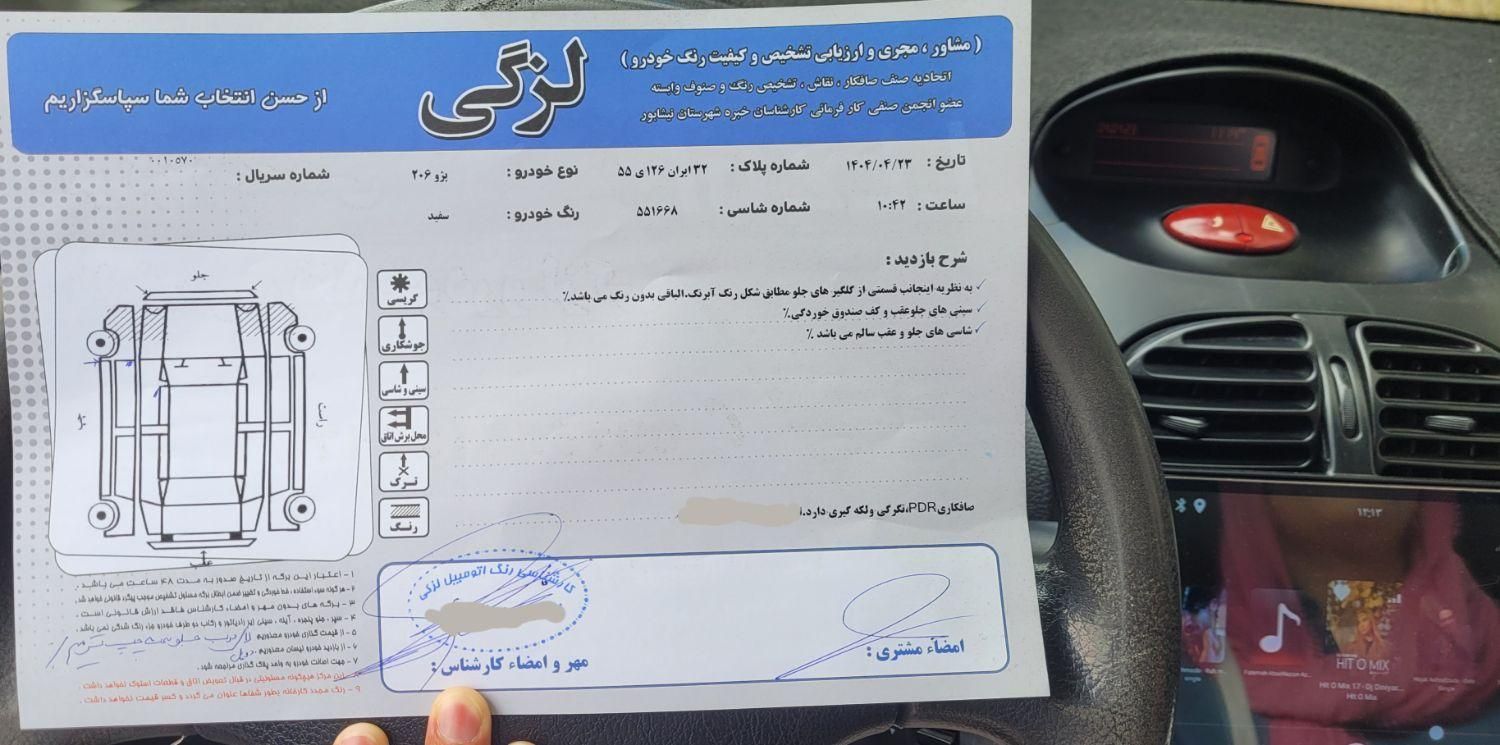 ( مشاور ، مجری و ارزیابی تشخیص و کیفیت رنگ خودرو )
اتحادیه صنف صافکار ، نقاش ، تشخیص رنگ و صنوف وابسته
عضو انجمن صنفی کارفرمائی کارشناسان خبره شهرستان نیشابور
لزگی
از حسن انتخاب شما سپاسگزاریم
تاریخ : ۱۴۰۴/۰۴/۲۳ شماره پلاک : ۳۲ ایران ۱۲۶ ی ۵۵ نوع خودرو : پژو ۲۰۶ شماره سریال : ۰۰۱۰۵۷۰
ساعت : ۱۰:۴۲ شماره شاسی : ۵۵۱۶۶۸ رنگ خودرو : سفید
شرح بازدید :
به نظریه اینجانب قسمتی از گلگیر های جلو مطابق شکل رنگ آبرنگ،الباقی بدون رنگ می باشد.٪
سینی های جلوعقب و کف صندوق خوردگی.٪
شاسی های جلو و عقب سالم می باشد .٪
صافکاری PDR،تگرگی ولکه گیری دارد.
گریسی
جوشکاری
سینی و شاسی
محل برش اتاق
ترک
رنگ
جلو
راست
چپ
عقب
۱ - اعتبار این برگه از تاریخ صدور به مدت ۴۸ ساعت می باشد .
۲ - هر گونه سوء استفاده ، خط خوردگی و تغییر ضمن ابطال برگه مسئول تشخیص موجب پیگرد قانونی خواهد شد.
۳ - برگه های بدون مهر و امضاء کارشناس فاقد ارزش قانونی است .
۴ - سپر ، جلو پنجره ، آینه ، سینی زیر رادیاتور و رکاب دو طرف خودرو جزء رنگ شدگی نمی باشد .
۵ - از قیمت گذاری خودرو معذوریم
۶ - از بازدید خودرو نیسان معذوریم .
۷ - جهت اصالت خودرو به واحد پلاک گذاری مراجعه شود .
این مرکز هیچگونه مسئولیتی در قبال تعویض اتاق و قطعات استوک نخواهد داشت .
۹ - رنگ مجدد کارخانه بطور شفاها عنوان می گردد و کسر قیمت نخواهد داشت .
کارشناسی رنگ اتومبیل لزگی
مهر و امضاء کارشناس :
امضاء مشتری :
۱۴:۱۳
HIT O MIX
Hit O Mix 17 - Dj Diniyar...
Hit O Mix
single
Single